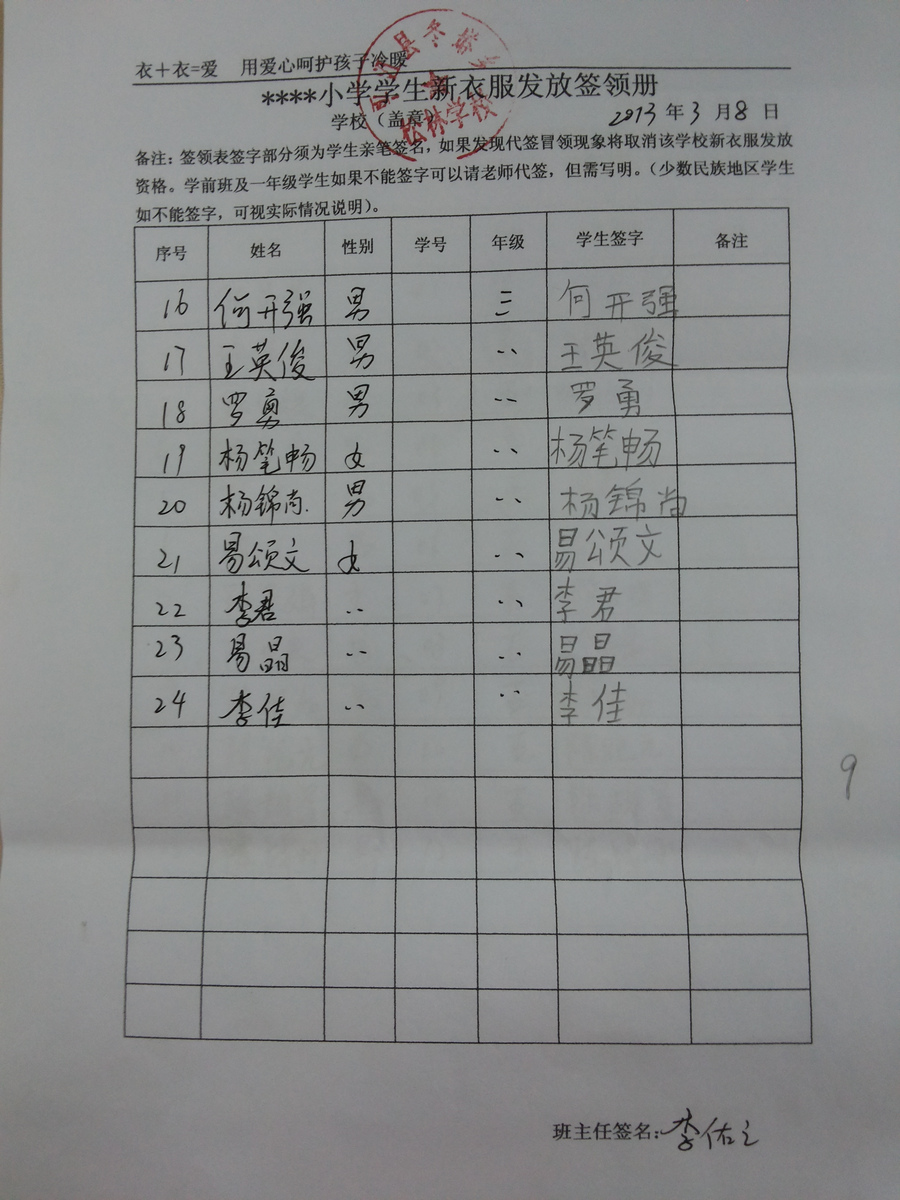 衣+衣=爱 用爱心呵护孩子冷暖
****小学学生新衣服发放签领册
学校（盖章） 2013年3月8日
松林学校
备注：签领表签字部分须为学生亲笔签名，如果发现代签冒领现象将取消该学校新衣服发放
资格。学前班及一年级学生如果不能签字可以请老师代签，但需写明。（少数民族地区学生
如不能签字，可视实际情况说明）。
序号 姓名 性别 学号 年级 学生签字 备注
16 何开强 男 三 何开强
17 王英俊 男 、、 王英俊
18 罗勇 男 、、 罗勇
19 杨笔畅 女 、、 杨笔畅
20 杨锦尚 男 、、 杨锦尚
21 易颂文 女 、、 易颂文
22 李君 、、 、、 李君
23 易晶 、、 、、 易晶
24 李佳 、、 、、 李佳
9
班主任签名：李佑之